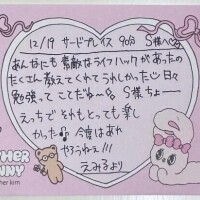 12/19 サードプレイス 90分 S様へ
あんなにも素敵なライフハックがあったの
たくさん教えてくれてうれしかったﾆ 日々
勉強ってことだね S様ちょー
えっちで それもとっても楽し
かった 今度はあれ
やろうねぇ!!!
えみるより
THER
NNY
her kim